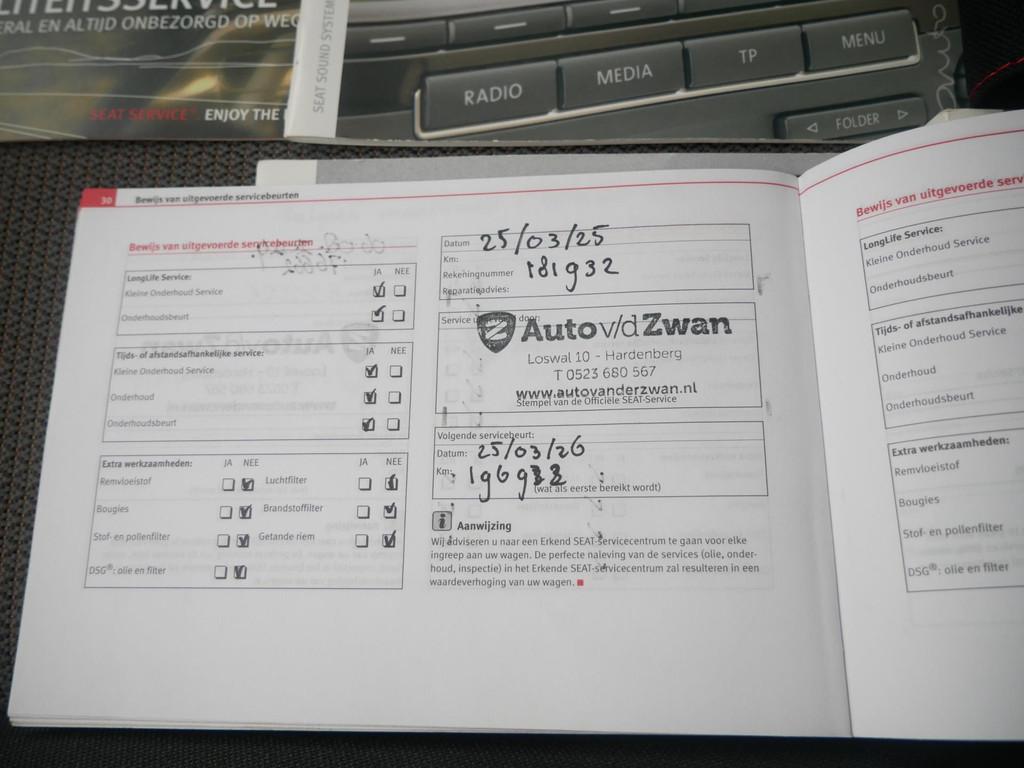 LITEITSSERVICE
ERAL EN ALTIJD ONBEZORGD OP WEG
SEAT SERVICE. ENJOY THE
SEAT SOUND SYSTEM
RADIO
MEDIA
TP
MENU
◁ FOLDER ▷
30 Bewijs van uitgevoerde servicebeurten
Bewijs van uitgevoerde servicebeurten
LongLife Service: JA NEE
Kleine Onderhoud Service
Onderhoudsbeurt
Tijds- of afstandsafhankelijke service: JA NEE
Kleine Onderhoud Service
Onderhoud
Onderhoudsbeurt
Extra werkzaamheden: JA NEE JA NEE
Remvloeistof Luchtfilter
Bougies Brandstoffilter
Stof- en pollenfilter Getande riem
DSG®: olie en filter
Datum 25/03/25
Km: 181932
Rekeningnummer
Reparatieadvies:
Service door:
Auto v/d Zwan
Loswal 10 - Hardenberg
T 0523 680 567
www.autovanderzwan.nl
Stempel van de Officiële SEAT-Service
Volgende servicebeurt:
Datum: 25/03/26
Km: 196932
(wat als eerste bereikt wordt)
i Aanwijzing
Wij adviseren u naar een Erkend SEAT-servicecentrum te gaan voor elke
ingreep aan uw wagen. De perfecte naleving van de services (olie, onder-
houd, inspectie) in het Erkende SEAT-servicecentrum zal resulteren in een
waardeverhoging van uw wagen. ■
Bewijs van uitgevoerde serv
LongLife Service:
Kleine Onderhoud Service
Onderhoudsbeurt
Tijds- of afstandsafhankelijke
Kleine Onderhoud Service
Onderhoud
Onderhoudsbeurt
Extra werkzaamheden:
Remvloeistof
Bougies
Stof- en pollenfilter
DSG®: olie en filter